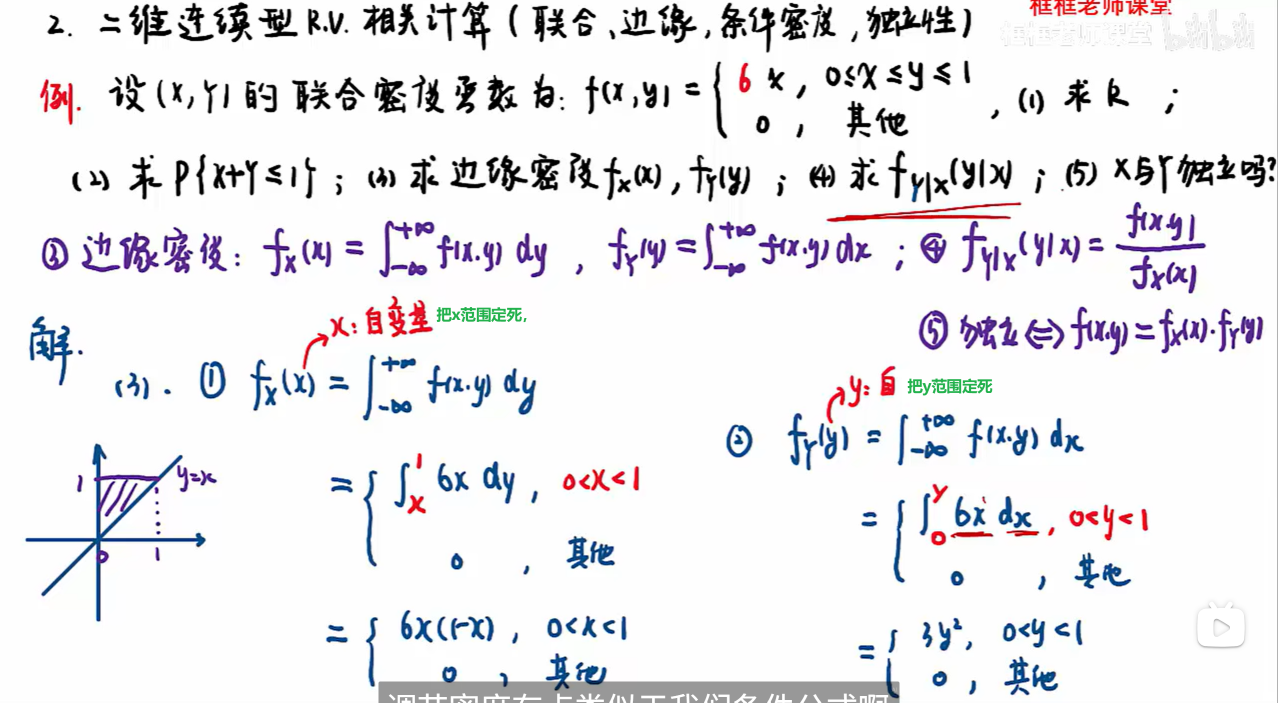 框框老师课堂
2. 二维连续型 R.V. 相关计算(联合、边缘,条件密度,独立性)
框框老师课堂 bilibili
例. 设(X,Y)的联合密度函数为: f(x,y) = { 6x, 0≤x≤y≤1
0, 其他 , (1) 求k ;
(2) 求P{X+Y≤1} ; (3) 求边缘密度f_X(x), f_Y(y) ; (4) 求f_{Y|X}(y|x) ; (5) X与Y独立吗?
③ 边缘密度: f_X(x) = ∫_{-∞}^{+∞} f(x,y) dy , f_Y(y) = ∫_{-∞}^{+∞} f(x,y) dx ; ④ f_{Y|X}(y|x) = f(x,y)/f_X(x)
⑤ 独立 ⇔ f(x,y) = f_X(x)·f_Y(y)
解.
x: 自变量 把x范围定死,
(3). ① f_X(x) = ∫_{-∞}^{+∞} f(x,y) dy
= { ∫_x^1 6x dy, 0<x<1
0 , 其他
= { 6x(1-x), 0<x<1
0 , 其他
1 y=x
0 1
y: 自 把y范围定死
② f_Y(y) = ∫_{-∞}^{+∞} f(x,y) dx
= { ∫_0^y 6x dx, 0<y<1
0 , 其他
= { 3y², 0<y<1
0 , 其他